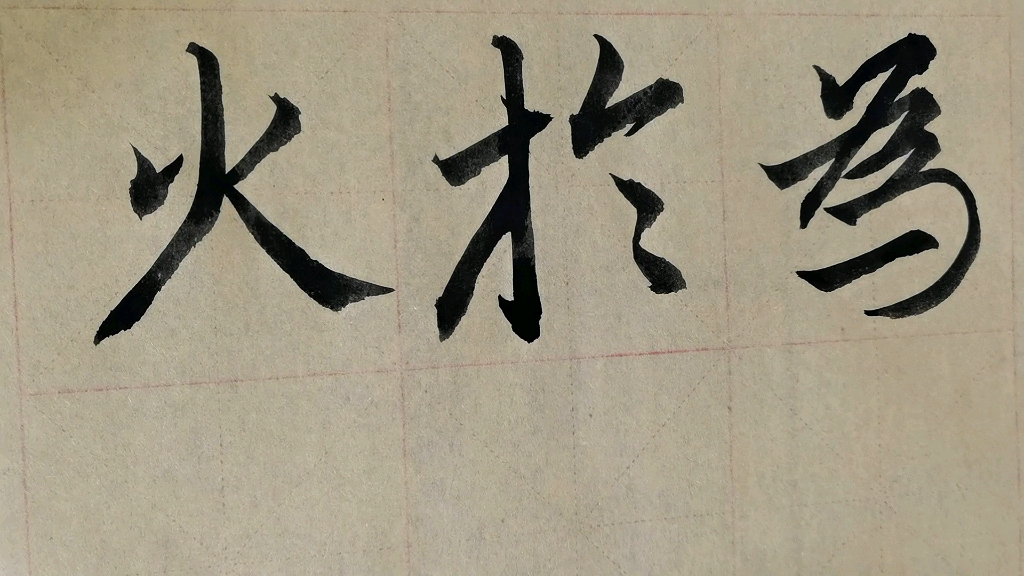 火於為